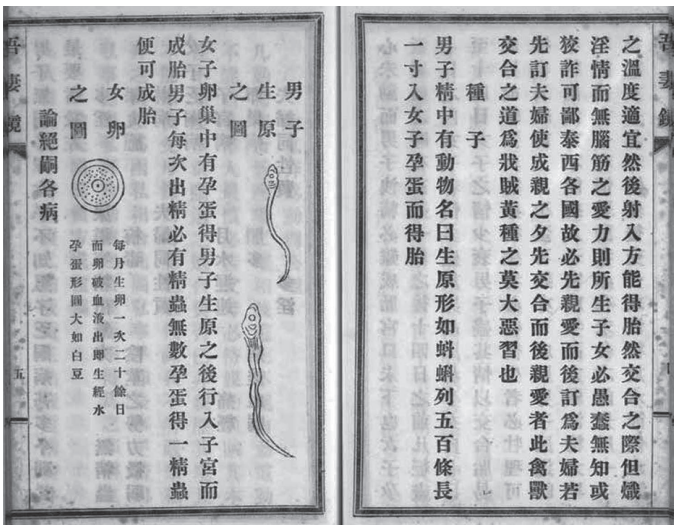 吾妻鏡
之溫度適宜然後射入方能得胎然交合之際但熾
淫情而無腦筋之愛力則所生子女必愚蠢無知或
狡詐可鄙泰西各國故必先親愛而後訂爲夫婦若
先訂夫婦使成親之夕先交合而後親愛者此禽獸
交合之道爲戕賊黃種之莫大惡習也
種子
男子精中有動物名曰生原形如蝌蝌列五百條長
一寸入女子孕蛋而得胎
男子
生原
之圖
女子卵巢中有孕蛋得男子生原之後行入子宮而
成胎男子每次出精必有精蟲無數孕蛋得一精蟲
便可成胎
女卵
之圖
每月生卵一次二十餘日
而卵破血液出即生經水
孕蛋形圓大如白豆
論絕嗣各病
吾妻鏡
五